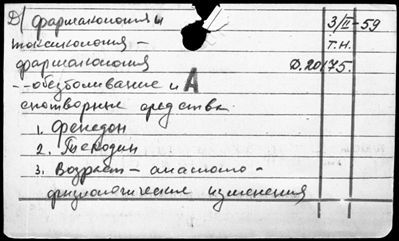 Д/ фармакология и
3/II-59
токсикология –
т.н.
фармакология
Д.20175.
– обезболивание и А
снотворные средства.
1. Фенедон
2. Текодин
3. Возраст – анатомо-
физиологические изменения